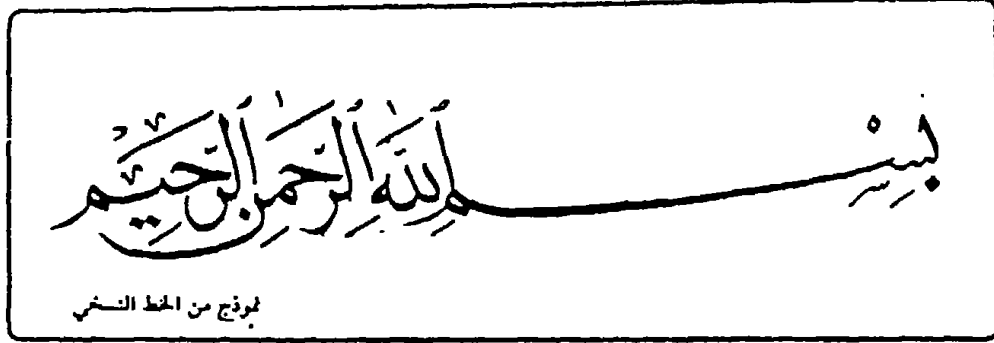 بِسْمِ اللَّهِ الرَّحْمَٰنِ الرَّحِيمِ
نموذج من الخط النسخي